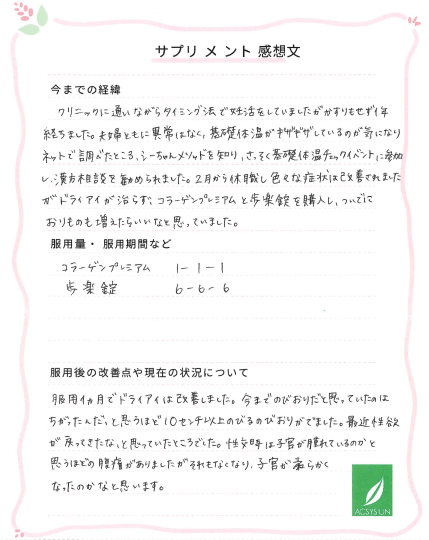 サプリメント感想文
今までの経緯
クリニックに通いながらタイミング法で妊活をしていましたがかすりもせず1年
経ちました。夫婦ともに異常はなく、基礎体温がギザギザしているのが気になり
ネットで調べたところ、シーちゃんメソッドを知り、さっそく基礎体温チェックイベントに参加
し、漢方相談を勧められました。2月から休職し色々な症状は改善されました
がドライアイが治らず、コラーゲンプレミアムと歩楽錠を購入し、ついでに
おりものも増えたらいいなと思っていました。
服用量・服用期間など
コラーゲンプレミアム 1-1-1
歩楽錠 6-6-6
服用後の改善点や現在の状況について
服用1カ月でドライアイは改善しました。今までのびおりだと思っていたのは
ちがったんだ、と思うほど10センチ以上のびるのびおりがでました。最近性欲
が戻ってきたな、と思っていたところでした。性交時は子宮が腫れているのかと
思うほどの腹痛がありましたがそれもなくなり、子宮が柔らかく
なったのかなと思います。
ACSYS UN